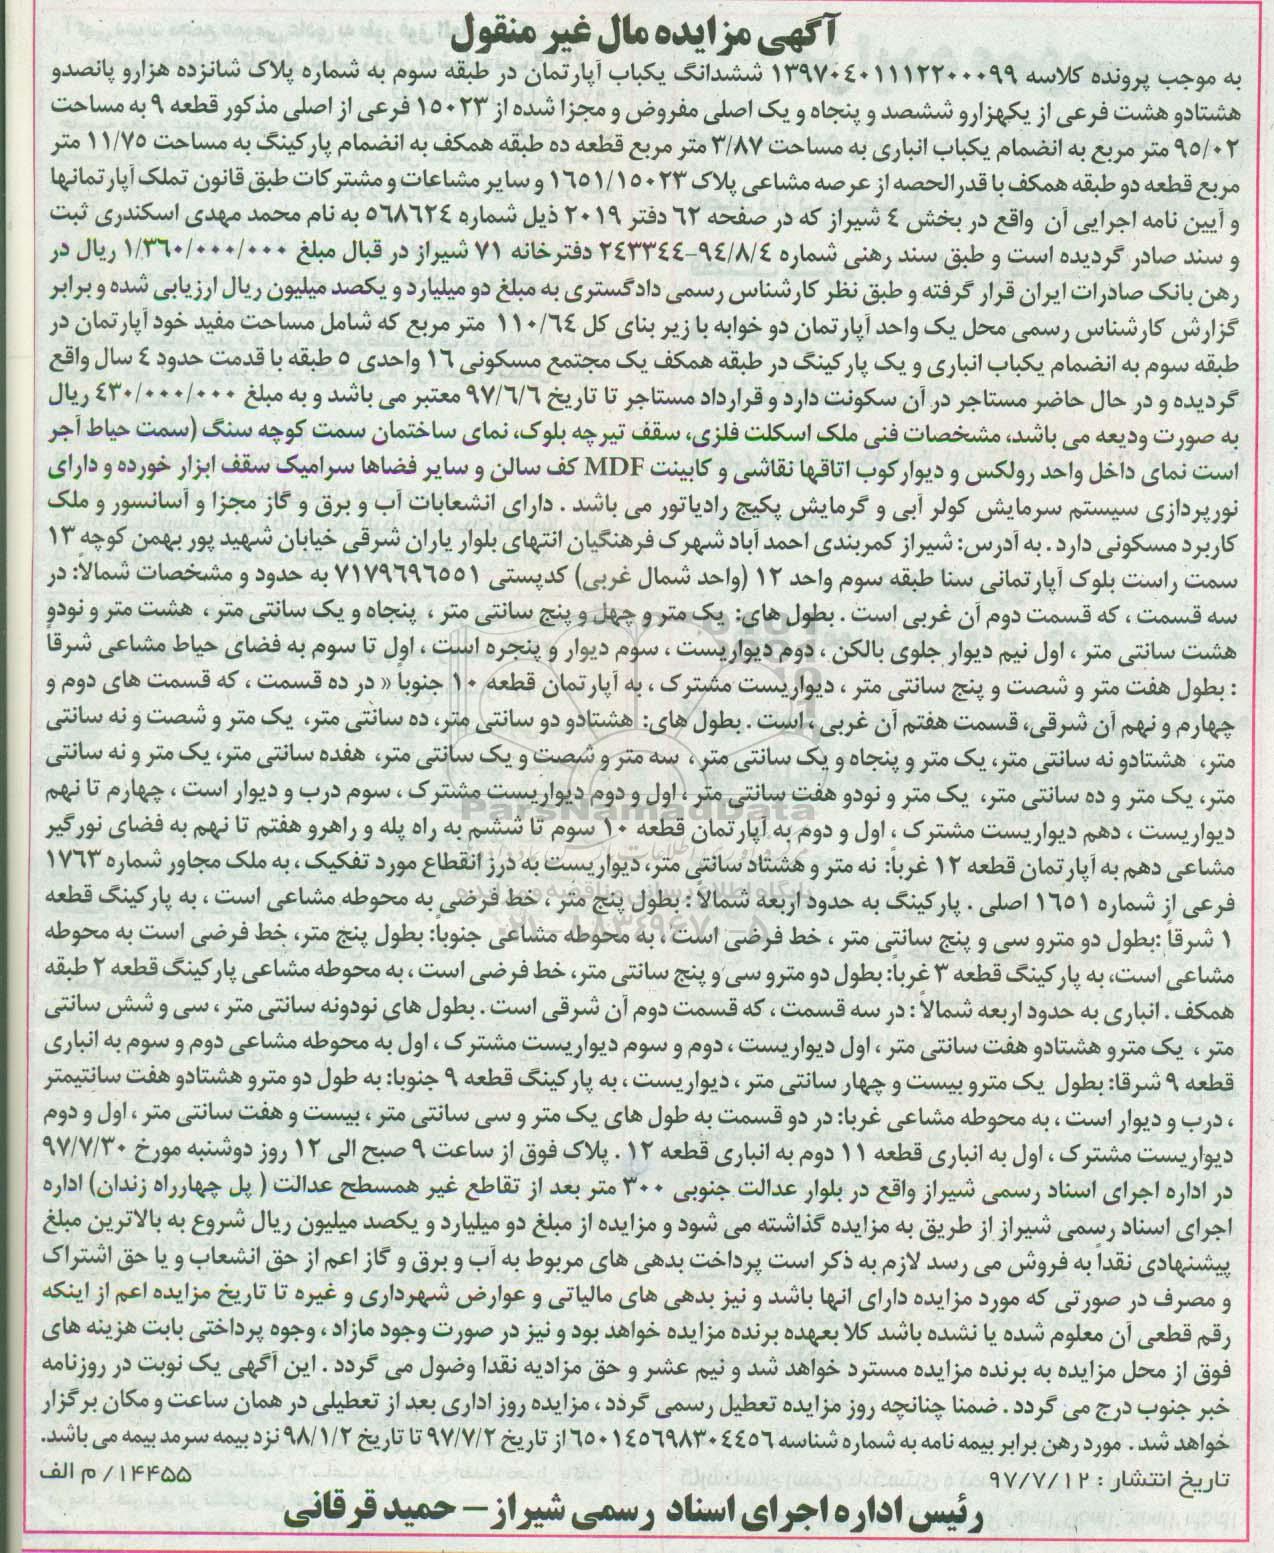 آگهی مزایده مال غیر منقول
به موجب پرونده کلاسه ۱۳۹۷۰۴۰۱۱۱۱۲۲۰۰۰۹۹ ششدانگ یکباب آپارتمان در طبقه سوم به شماره پلاک شانزده هزارو پانصدو
هشتادو هشت فرعی از یکهزارو ششصد و پنجاه و یک اصلی مفروض و مجزا شده از ۱۵۰۲۳ فرعی از اصلی مذکور قطعه ۹ به مساحت
۹۵/۰۲ متر مربع به انضمام یکباب انباری به مساحت ۳/۸۷ متر مربع قطعه ده طبقه همکف به انضمام پارکینگ به مساحت ۱۱/۷۵ متر
مربع قطعه دو طبقه همکف با قدرالحصه از عرصه مشاعی پلاک ۱۶۵۱/۱۵۰۲۳ و سایر مشاعات و مشترکات طبق قانون تملک آپارتمانها
و آیین نامه اجرایی آن واقع در بخش ٤ شیراز که در صفحه ۶۲ دفتر ۲۰۱۹ ذیل شماره ۵۶۸۶۲٤ به نام محمد مهدی اسکندری ثبت
و سند صادر گردیده است و طبق سند رهنی شماره ۹٤/۸/٤-۲٤۳۳٤٤ دفترخانه ۷۱ شیراز در قبال مبلغ ۱/۳۶۰/۰۰۰/۰۰۰ ریال در
رهن بانک صادرات ایران قرار گرفته و طبق نظر کارشناس رسمی دادگستری به مبلغ دو میلیارد و یکصد میلیون ریال ارزیابی شده و برابر
گزارش کارشناس رسمی محل یک واحد آپارتمان دو خوابه با زیر بنای کل ۱۱۰/۶٤ متر مربع که شامل مساحت مفید خود آپارتمان در
طبقه سوم به انضمام یکباب انباری و یک پارکینگ در طبقه همکف یک مجتمع مسکونی ۱۶ واحدی ۵ طبقه با قدمت حدود ٤ سال واقع
گردیده و در حال حاضر مستاجر در آن سکونت دارد و قرارداد مستاجر تا تاریخ ۹۷/۶/۶ معتبر می باشد و به مبلغ ٤۳۰/۰۰۰/۰۰۰ ریال
به صورت ودیعه می باشد، مشخصات فنی ملک اسکلت فلزی، سقف تیرچه بلوک، نمای ساختمان سمت کوچه سنگ (سمت حیاط آجر
است نمای داخل واحد رولکس و دیوارکوب اتاقها نقاشی و کابینت MDF کف سالن و سایر فضاها سرامیک سقف ابزار خورده و دارای
نورپردازی سیستم سرمایش کولر آبی و گرمایش پکیج رادیاتور می باشد . دارای انشعابات آب و برق و گاز مجزا و آسانسور و ملک
کاربرد مسکونی دارد . به آدرس: شیراز کمربندی احمد آباد شهرک فرهنگیان انتهای بلوار یاران شرقی خیابان شهید پور بهمن کوچه ۱۳
سمت راست بلوک آپارتمانی سنا طبقه سوم واحد ۱۲ (واحد شمال غربی) کدپستی ۷۱۷۹۶۹۶۵۵۱ به حدود و مشخصات شمالاً: در
سه قسمت ، که قسمت دوم آن غربی است . بطول های: یک متر و چهل و پنج سانتی متر ، پنجاه و یک سانتی متر ، هشت متر و نودو
هشت سانتی متر ، اول نیم دیوار جلوی بالکن ، دوم دیواریست ، سوم دیوار و پنجره است ، اول تا سوم به فضای حیاط مشاعی شرقاً
: بطول هفت متر و شصت و پنج سانتی متر ، دیواریست مشترک ، به آپارتمان قطعه ۱۰ جنوباً « در ده قسمت ، که قسمت های دوم و
چهارم و نهم آن شرقی، قسمت هفتم آن غربی ، است . بطول های: هشتادو دو سانتی متر، ده سانتی متر، یک متر و شصت و نه سانتی
متر، هشتادو نه سانتی متر، یک متر و پنجاه و یک سانتی متر ، سه متر و شصت و یک سانتی متر، هفده سانتی متر، یک متر و نه سانتی
متر، یک متر و ده سانتی متر، یک متر و نودو هفت سانتی متر ، اول و دوم دیواریست مشترک ، سوم درب و دیوار است ، چهارم تا نهم
دیواریست ، دهم دیواریست مشترک ، اول و دوم به آپارتمان قطعه ۱۰ سوم تا ششم به راه پله و راهرو هفتم تا نهم به فضای نورگیر
مشاعی دهم به آپارتمان قطعه ۱۲ غرباً: نه متر و هشتاد سانتی متر، دیواریست به درز انقطاع مورد تفکیک ، به ملک مجاور شماره ۱۷۶۳
فرعی از شماره ۱۶۵۱ اصلی . پارکینگ به حدود اربعه شمالاً : بطول پنج متر ، خط فرضی به محوطه مشاعی است ، به پارکینگ قطعه
۱ شرقاً :بطول دو مترو سی و پنج سانتی متر ، خط فرضی است ، به محوطه مشاعی جنوباً: بطول پنج متر، خط فرضی است به محوطه
مشاعی است، به پارکینگ قطعه ۳ غرباً: بطول دو مترو سی و پنج سانتی متر، خط فرضی است ، به محوطه مشاعی پارکینگ قطعه ۲ طبقه
همکف . انباری به حدود اربعه شمالاً : در سه قسمت ، که قسمت دوم آن شرقی است . بطول های نودونه سانتی متر ، سی و شش سانتی
متر ، یک مترو هشتادو هفت سانتی متر ، اول دیواریست ، دوم و سوم دیواریست مشترک ، اول به محوطه مشاعی دوم و سوم به انباری
قطعه ۹ شرقا: بطول یک مترو بیست و چهار سانتی متر ، دیواریست ، به پارکینگ قطعه ۹ جنوبا: به طول دو مترو هشتادو هفت سانتیمتر
، درب و دیوار است ، به محوطه مشاعی غربا: در دو قسمت به طول های یک متر و سی سانتی متر ، بیست و هفت سانتی متر ، اول و دوم
دیواریست مشترک ، اول به انباری قطعه ۱۱ دوم به انباری قطعه ۱۲ . پلاک فوق از ساعت ۹ صبح الی ۱۲ روز دوشنبه مورخ ۹۷/۷/۳۰
در اداره اجرای اسناد رسمی شیراز واقع در بلوار عدالت جنوبی ۳۰۰ متر بعد از تقاطع غیر همسطح عدالت ( پل چهارراه زندان) اداره
اجرای اسناد رسمی شیراز از طریق به مزایده گذاشته می شود و مزایده از مبلغ دو میلیارد و یکصد میلیون ریال شروع به بالاترین مبلغ
پیشنهادی نقداً به فروش می رسد لازم به ذکر است پرداخت بدهی های مربوط به آب و برق و گاز اعم از حق انشعاب و یا حق اشتراک
و مصرف در صورتی که مورد مزایده دارای انها باشد و نیز بدهی های مالیاتی و عوارض شهرداری و غیره تا تاریخ مزایده اعم از اینکه
رقم قطعی آن معلوم شده یا نشده باشد کلا بعهده برنده مزایده خواهد بود و نیز در صورت وجود مازاد ، وجوه پرداختی بابت هزینه های
فوق از محل مزایده به برنده مزایده مسترد خواهد شد و نیم عشر و حق مزادیه نقدا وصول می گردد . این آگهی یک نوبت در روزنامه
خبر جنوب درج می گردد . ضمنا چنانچه روز مزایده تعطیل رسمی گردد ، مزایده روز اداری بعد از تعطیلی در همان ساعت و مکان برگزار
خواهد شد . مورد رهن برابر بیمه نامه به شماره شناسه ۶۵۰۱٤۵۶۹۸۳۰٤٤۵۶ از تاریخ ۹۷/۷/۲ تا تاریخ ۹۸/۱/۲ نزد بیمه سرمد بیمه می باشد.
تاریخ انتشار : ۹۷/۷/۱۲
۱۴۴۵۵/ م الف
رئیس اداره اجرای اسناد رسمی شیراز – حمید قرقانی
ParsNamadData
پایگاه اطلاع رسانی مناقصه و مزایده
۰۲۱-۸۸۳۴۹۶۷۰-۵